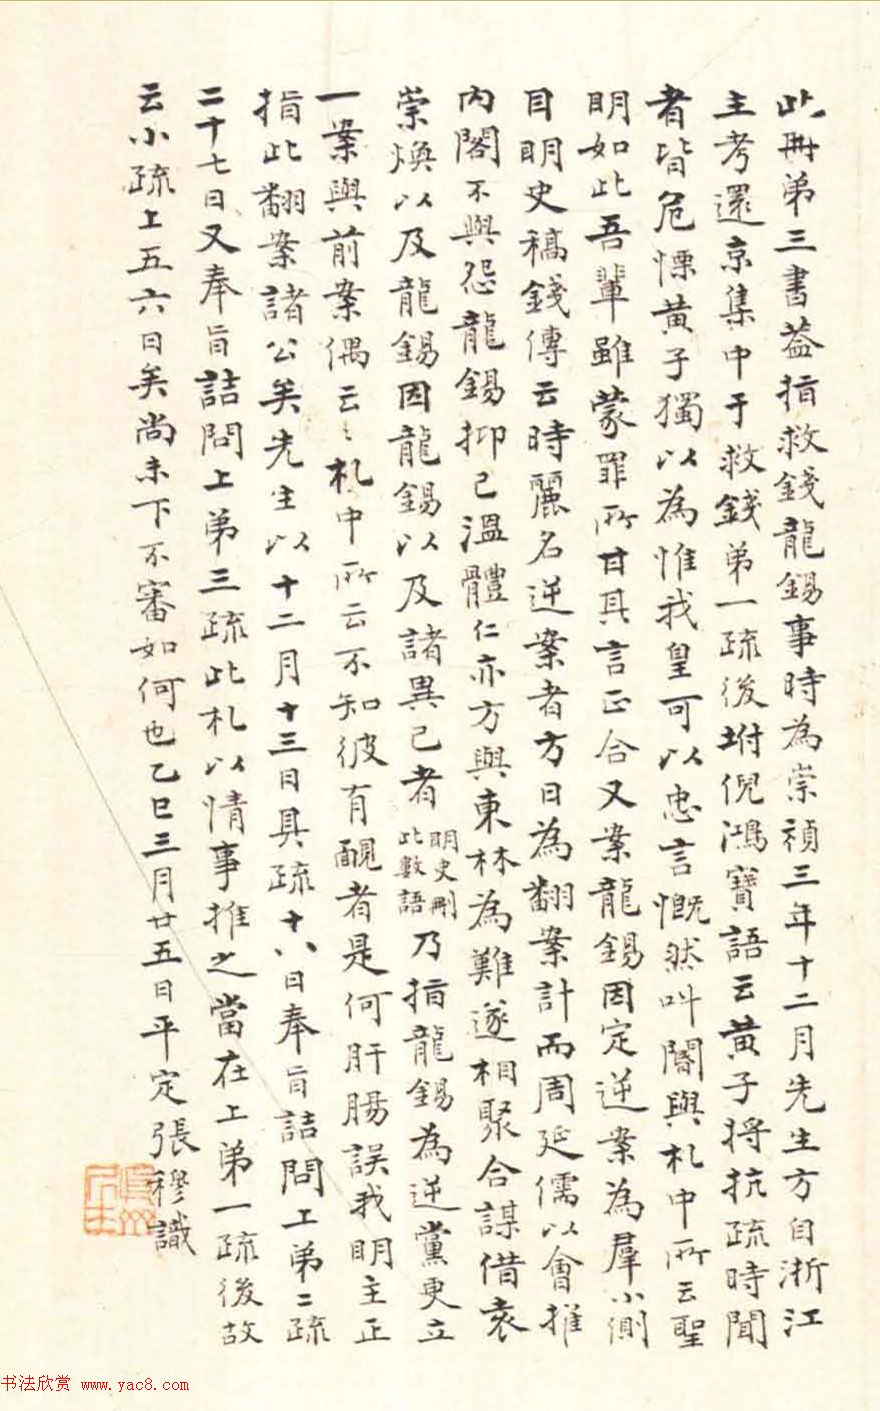 此冊弟三書葢指救錢龍錫事時為崇禎三年十二月先生方自浙江
主考還京集中于救錢弟一疏後坿倪鴻寶語云黃子將抗疏時聞
者皆危慄黃子獨以為惟我皇可以忠言慨然叫閽與札中所云聖
明如此吾輩雖蒙罪所甘其言正合又案龍錫因定逆案為羣小側
目明史稿錢傳云時麗名逆案者方日為翻案計而周延儒以會推
內閣不與怨龍錫抑己溫體仁亦方與東林為難遂相聚合謀借袁
崇煥以及龍錫因龍錫以及諸異己者明史刪此數語乃指龍錫為逆黨更立
一案與前案偶云〻札中所云不知彼有靦者是何肝腸誤我明主正
指此翻案諸公矣先生以十二月十三日具疏十八日奉旨詰問上弟二疏
二十七日又奉旨詰問上弟三疏此札以情事推之當在上弟一疏後故
云小疏上五六日矣尚未下不審如何也乙巳三月廿五日平定張穆識
书法欣赏 www.yac8.com